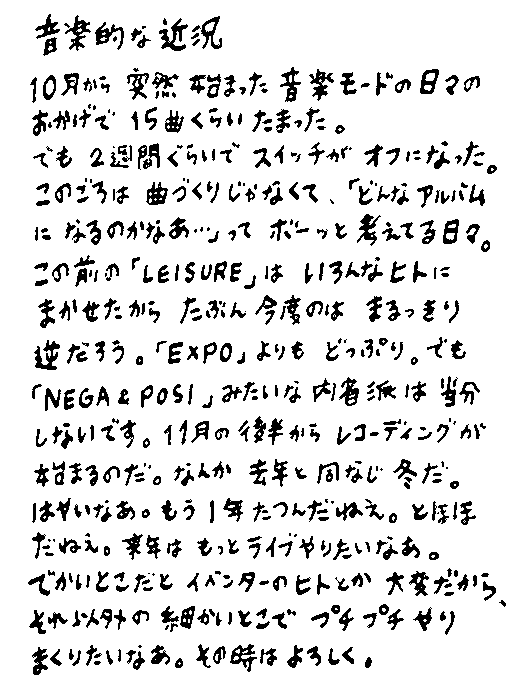 音楽的な近況
10月から 突然 始まった 音楽モードの日々の
おかげで 15曲くらい たまった。
でも 2週間ぐらいで スイッチが オフになった。
このごろは 曲づくりじゃなくて、「どんなアルバム
に なるのかなあ…」って ボーッと 考えてる日々。
この前の「LEISURE」は いろんなヒトに
まかせたから たぶん 今度のは まるっきり
逆だろう。「EXPO」よりも どっぷり。でも
「NEGA & POSI」みたいな 内省派は 当分
しないです。11月の 後半から レコーディングが
始まるのだ。なんか 去年と 同なじ 冬だ。
はやいなあ。もう 1年 たつんだねえ。とほほ
だねえ。来年は もっと ライブやりたいなあ。
でかいとこだと イベンターのヒトとか 大変だから、
それ以外の 細かいとこで プチプチ やり
まくりたいなあ。その時は よろしく。